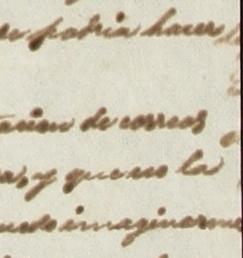 se podria hacer
acion de correos
as, y que no la
uedo imaginarme